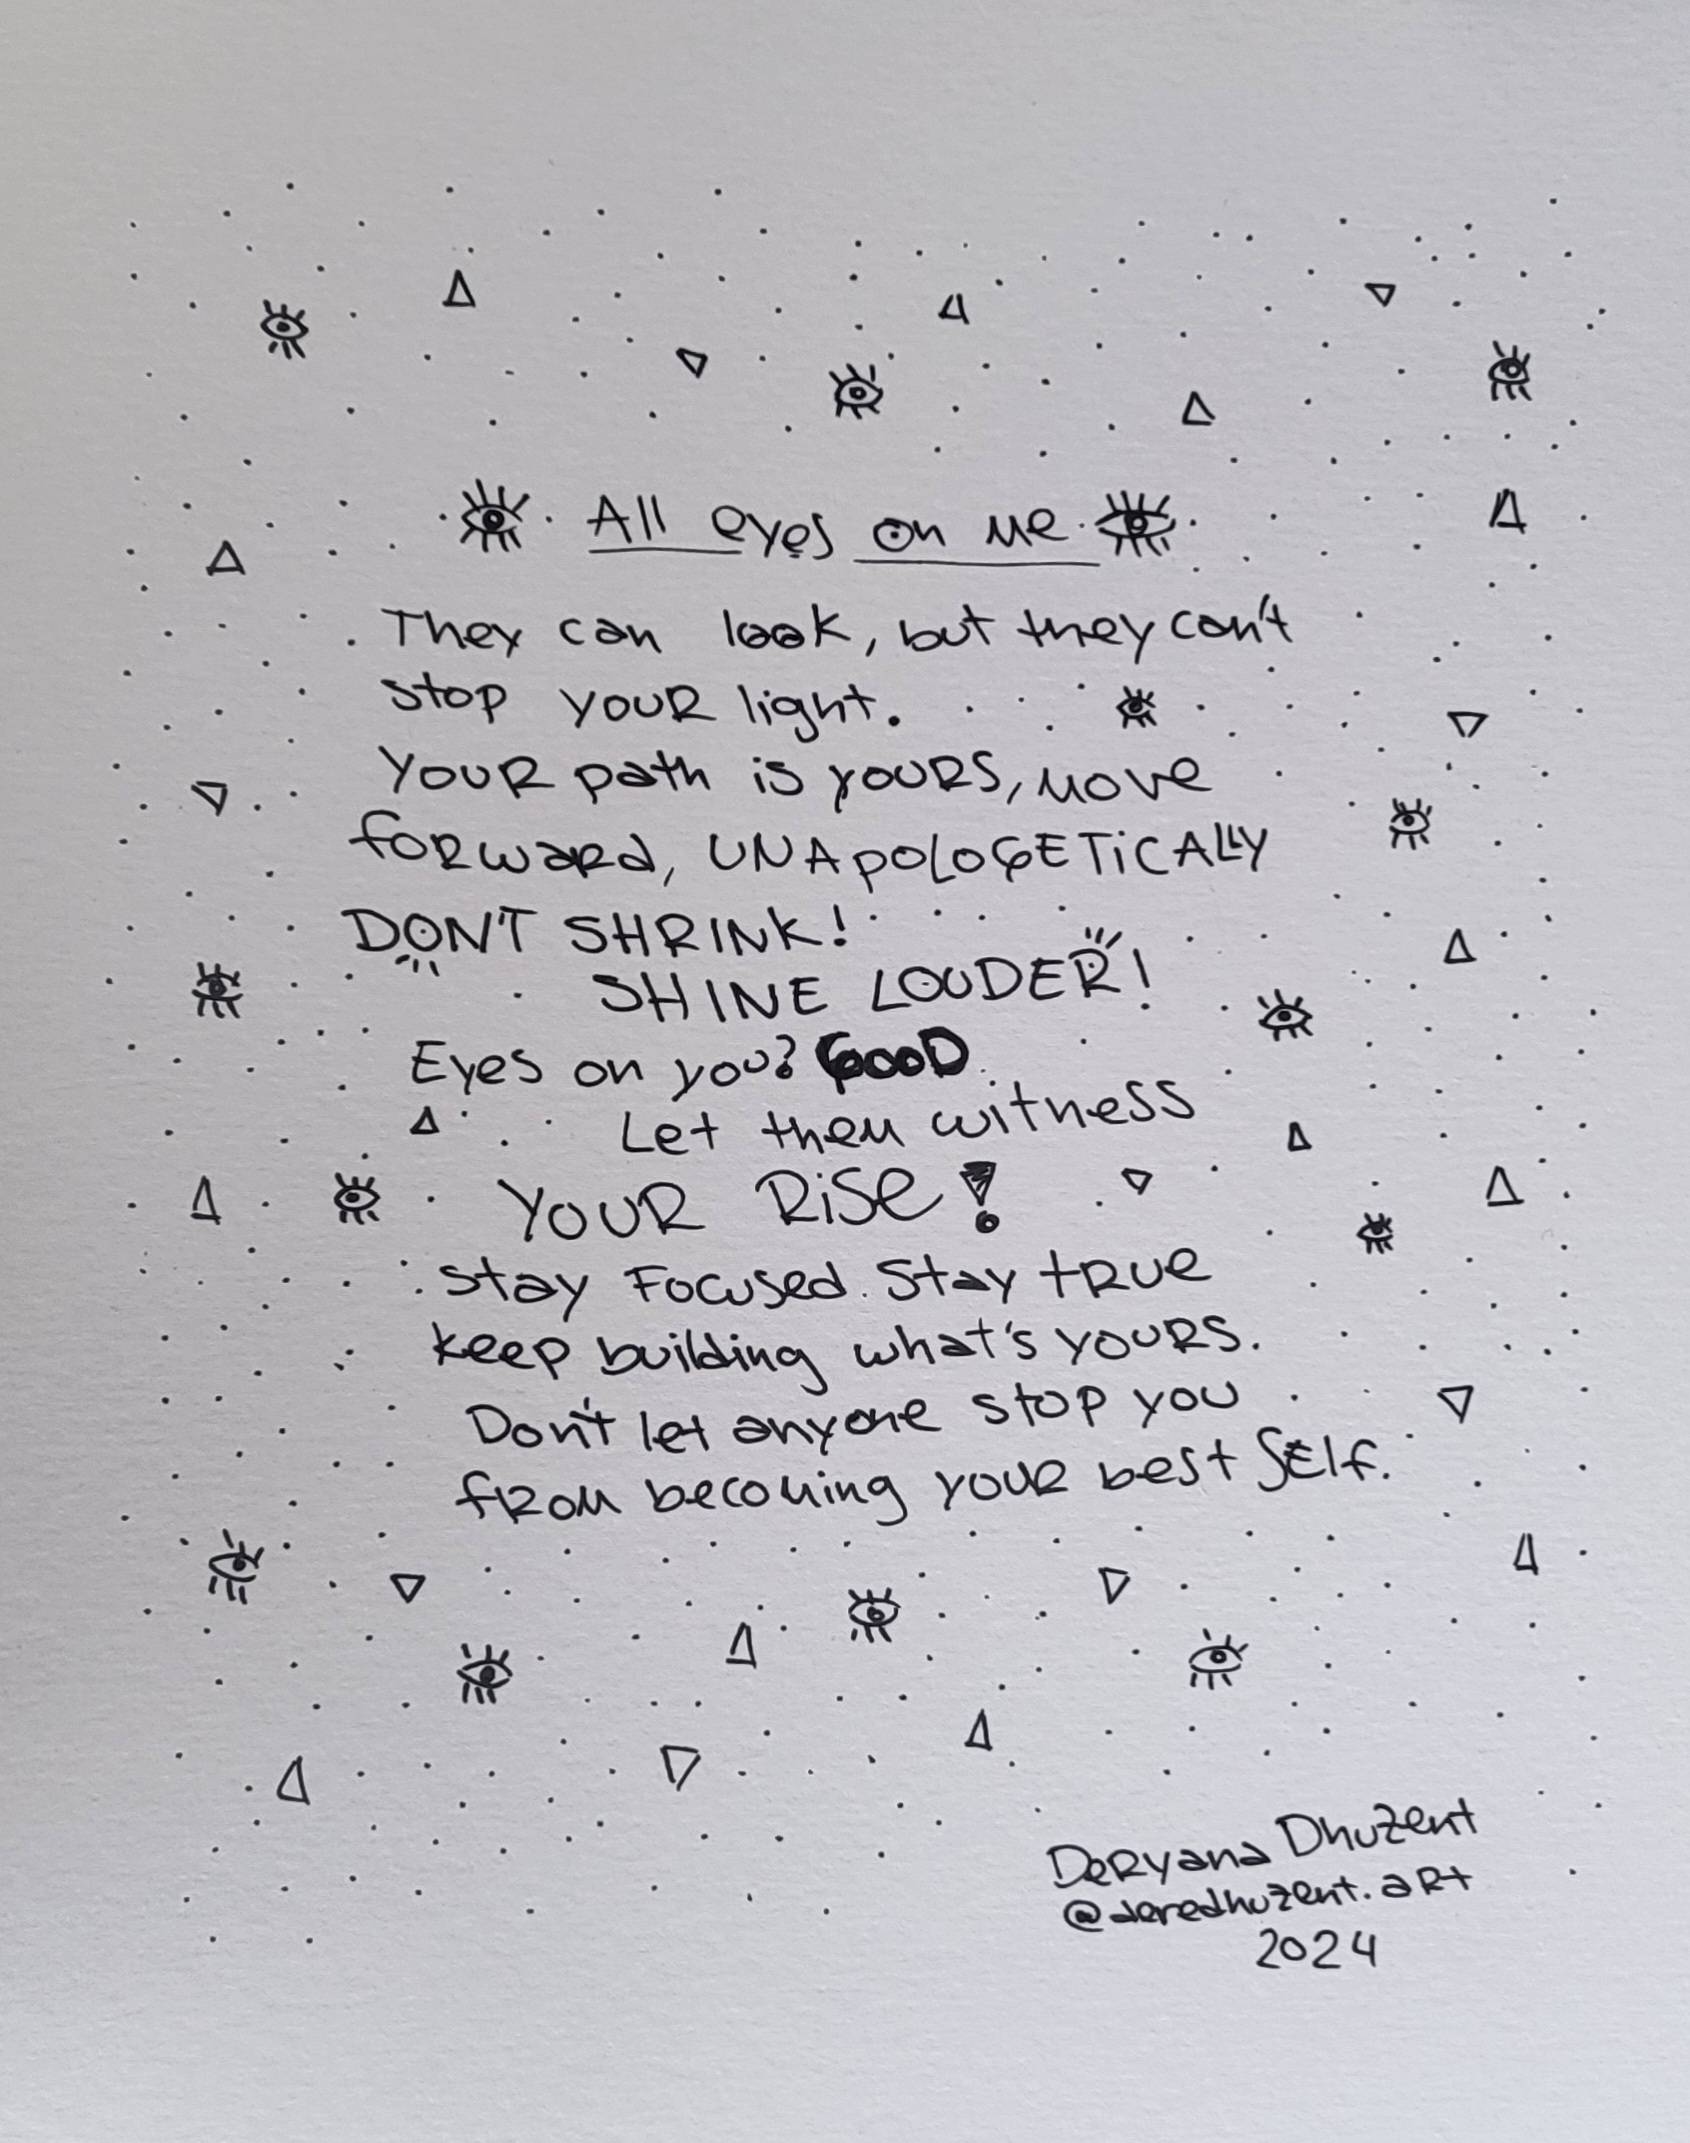 All eyes on me
They can look, but they can't
stop YOUR light.
YOUR path is yOURS, move
forward, UNApOLOGETiCALLY
DON'T SHRINK!
SHINE LOUDER!
Eyes on you? GOOD
Let them witness
YOUR RiSe!
stay Focused. Stay tRUe
keep building what's yOURS.
Don't let anyone stop you
fRom becoming YOUR best SElf.
DeRyana Dhuzent
@deredhuzent.aRt
2024